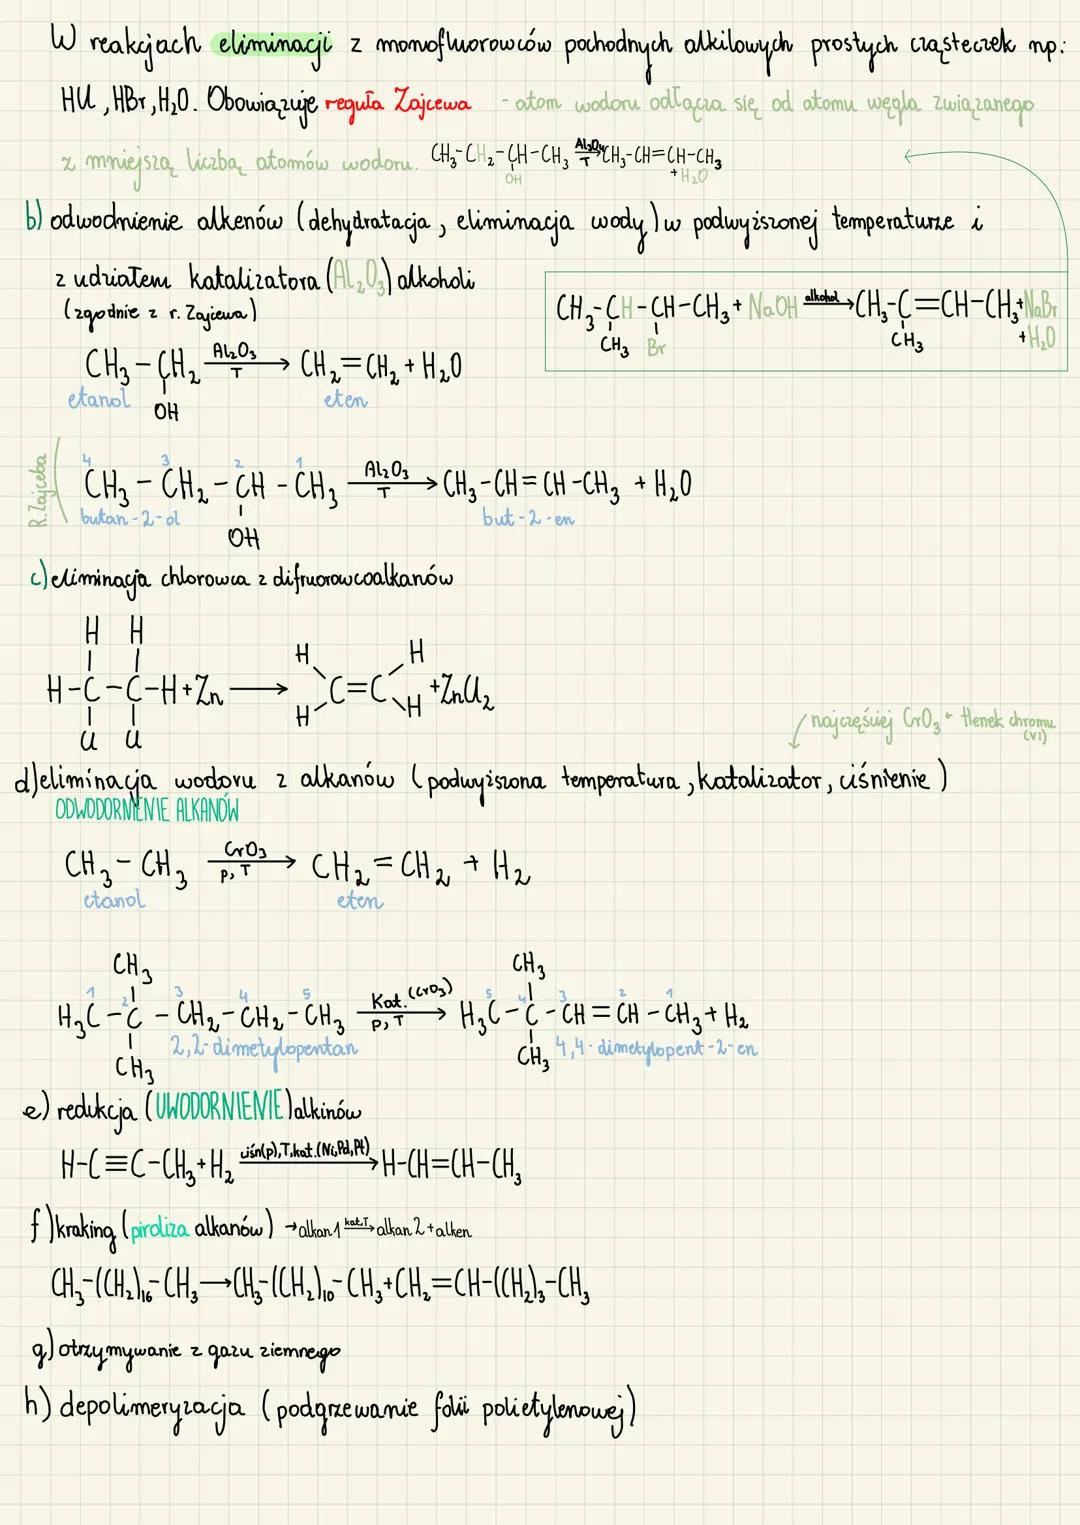 W reakcjach eliminacji z monofluorowców pochodnych alkilowych prostych cząsteczek np:
HCl, HBr, H₂O. Obowiązuje reguła Zajcewa - atom wodoru odłącza się od atomu węgla związanego
z mniejszą liczbą atomów wodoru. CH₃-CH₂-CH-CH₃ Al₂O₃ T CH₃-CH=CH-CH₃
OH + H₂O
b) odwodnienie alkenów (dehydratacja, eliminacja wody) w podwyższonej temperaturze i
z udziałem katalizatora (Al₂O₃) alkoholi
(zgodnie z r. Zajcewa)
CH₃-CH-CH-CH₃ + NaOH alkohol → CH₃-C=CH-CH₃ + NaBr
CH₃ Br CH₃ + H₂O
CH₃ - CH₂ Al₂O₃ T → CH₂=CH₂ + H₂O
etanol OH eten
R. Zajceba
4 3 2 1
CH₃ - CH₂ - CH - CH₃ Al₂O₃ T → CH₃-CH=CH-CH₃ + H₂O
butan-2-ol but-2-en
OH
c) eliminacja chlorowca z difruorowcoalkanów
H H
H H
H-C-C-H + Zn → C=C + ZnCl₂
H H
Cl Cl
najczęściej CrO₃ ← tlenek chromu (VI)
d) eliminacja wodoru z alkanów (podwyższona temperatura, katalizator, ciśnienie)
ODWODORNIENIE ALKANÓW
CH₃ - CH₃ CrO₃ p, T → CH₂=CH₂ + H₂
etanol eten
CH₃ CH₃
1 2 3 4 5 5 4 3 2 1
H₃C - C - CH₂ - CH₂ - CH₃ Kat. (CrO₃) P, T → H₃C - C - CH = CH - CH₃ + H₂
2,2-dimetylopentan 4,4-dimetylopent-2-en
CH₃ CH₃
e) redukcja (UWODORNIENIE) alkinów
H-C≡C-CH₃ + H₂ ciśn(p), T, kat. (Ni, Pd, Pt) → H-CH=CH-CH₃
f) kraking (piroliza alkanów) → alkan 1 kat. T → alkan 2 + alken
CH₃-(CH₂)₁₆-CH₃ → CH₃-(CH₂)₁₀-CH₃ + CH₂=CH-(CH₂)₃-CH₃
g) otrzymywanie z gazu ziemnego
h) depolimeryzacja (podgrzewanie folii polietylenowej)